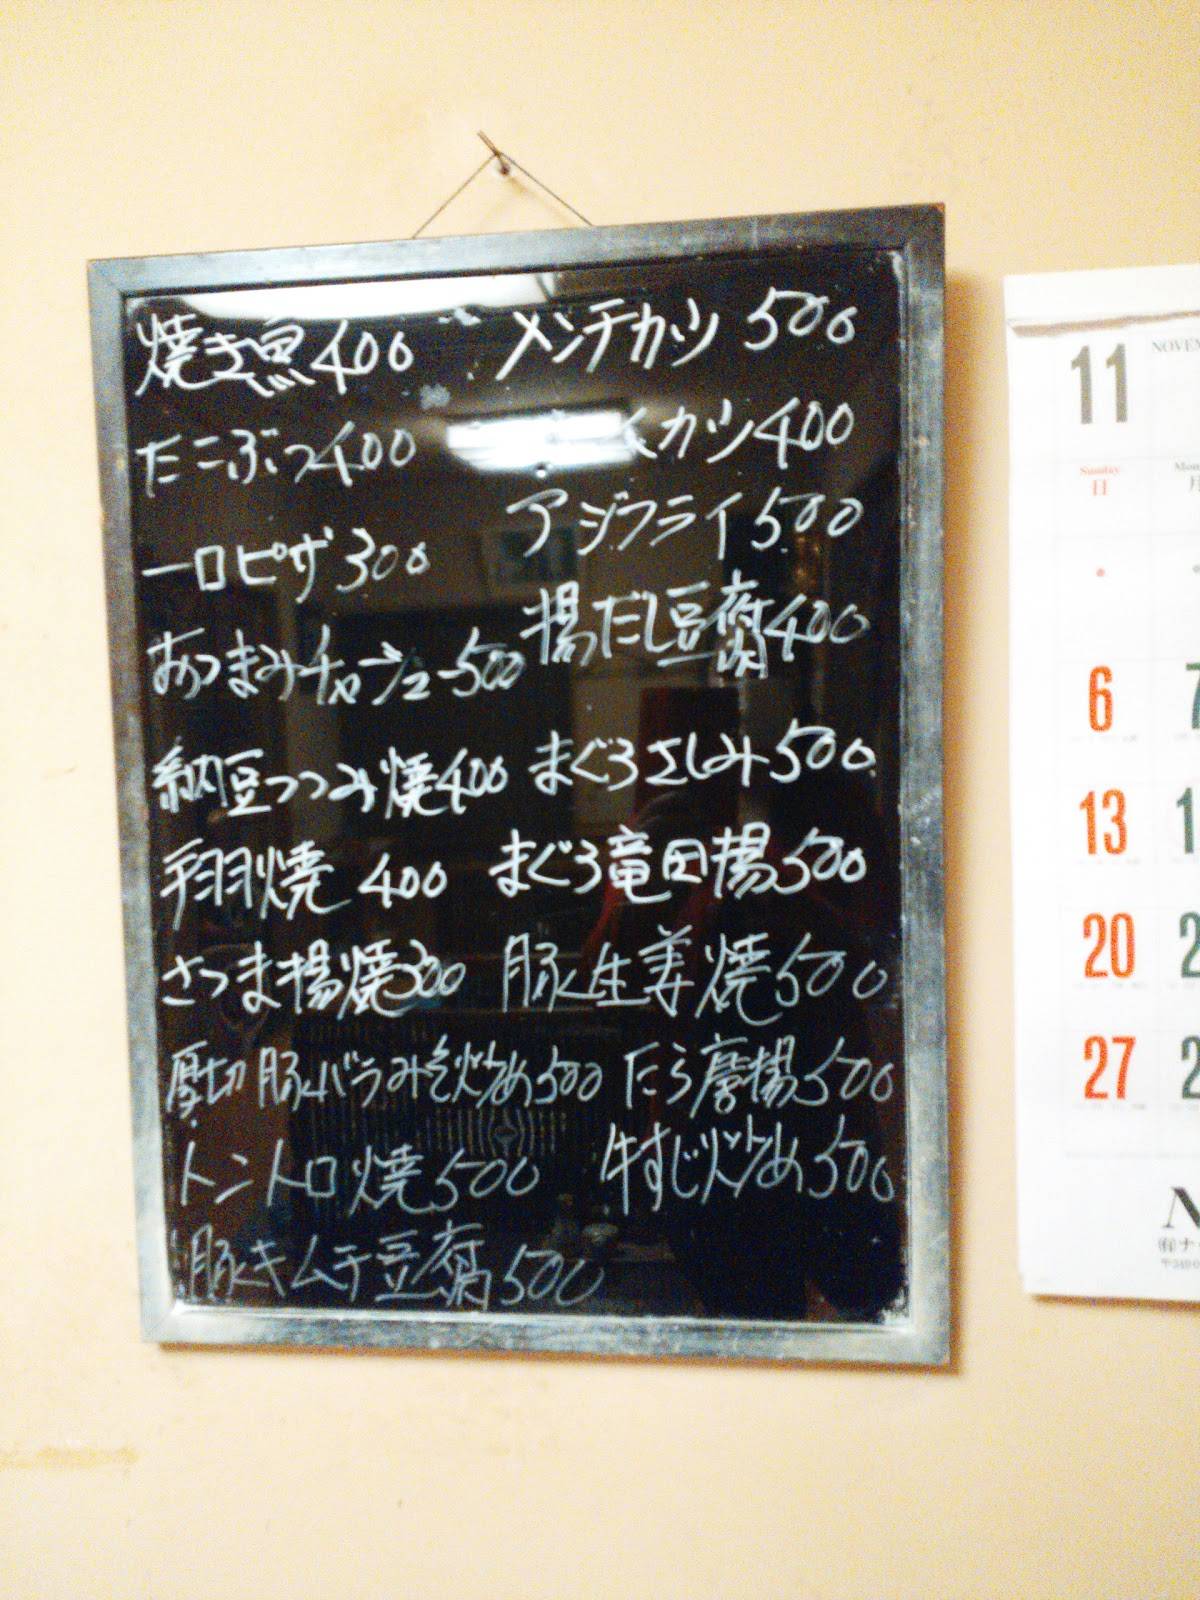 焼き魚400
たこぶつ400
一口ピザ300
おつまみチャーシュー500
納豆つつみ焼400
手羽焼 400
さつま揚焼300
厚切豚バラみそ炒め500
トントロ焼500
豚キムチ豆腐500
メンチカツ 500
カツ400
アジフライ500
揚だし豆腐400
まぐろさしみ500
まぐろ竜田揚500
豚生姜焼500
たら唐揚500
牛すじ炒め500
11
Sunday
日
月
6
13
20
27